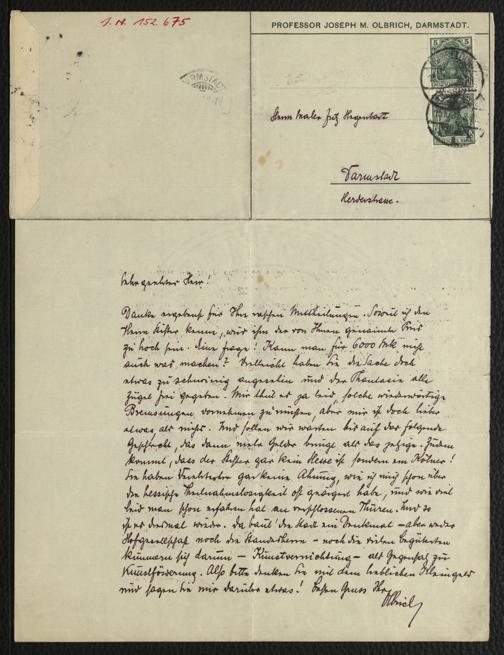 J. N. 152.675
PROFESSOR JOSEPH M. OLBRICH, DARMSTADT.
5 5
DARMSTADT
Herrn Maler Fritz Hegenbart
Darmstadt
Herderstrasse.
Sehr geehrter Herr!
Danke ergebenst für Ihre raschen Mittheilungen. Soweit ich den
Herrn Stifter kenne, wird ihm der von Ihnen genannte Preis
zu hoch sein. Eine Frage! Kann man für 6000 Mk nicht
auch was machen? Vielleicht haben Sie die Sache doch
etwas zu schwierig angesehen und der Phantasie alle
Zügel frei gegeben. Mir thut es ja leid, solche
Bremsungen vornehmen zu müssen, aber mir ist doch lieber
etwas als nichts. Und sollen wir warten bis auf das folgende
Geschlecht, das dann mehr Gelder bringt als das jetzige. Zudem
kommt, dass der Stifter gar kein Hesse ist sondern ein Kölner!
Sie haben gar keine Ahnung, wie ich mich schon über
die hessische Theilnahmslosigkeit oft geärgert habe, und wie viel
Leid man schon erfahren hat an verschlossenen Thüren. Und so
ist es diesmal wieder. Da baut die Stadt ein Denkmal - aber weder
Hofgesellschaft noch die Standesherrn - noch die vielen Begüterten
kümmern sich darum - Kunstvernichtung - als Gegensatz zu
Kunstförderung. Also bitte denken Sie mit dem lieblichen Kleingeld
und sagen Sie mir darüber etwas! Besten Gruss Ihr
Olbrich